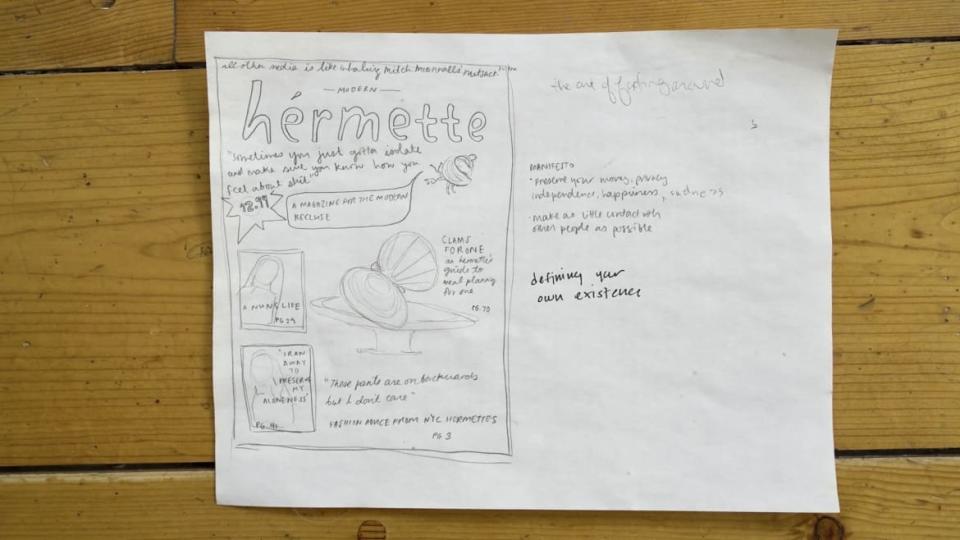 all other media is like inhaling Mitch McConnell's nutsack
— MODERN —
hérmette
"Sometimes you just gotta isolate
and make sure you know how you
feel about shit"
$2.99
A MAGAZINE FOR THE MODERN
RECLUSE
CLAMS
FOR ONE
an hermette's
guide to
meal planning
for one
PG. 70
A NUN'S LIFE
PG 29
"I RAN
AWAY
TO
PRESERVE
MY
ALONENESS"
PG.
"These pants are on backwards
but I don't care"
FASHION ADVICE FROM NYC HERMETTES
PG 3
the art of farting around
MANIFESTO
· Preserve your money, privacy
independence, happiness, sadness
· make as little contact with
other people as possible
defining your
own existence